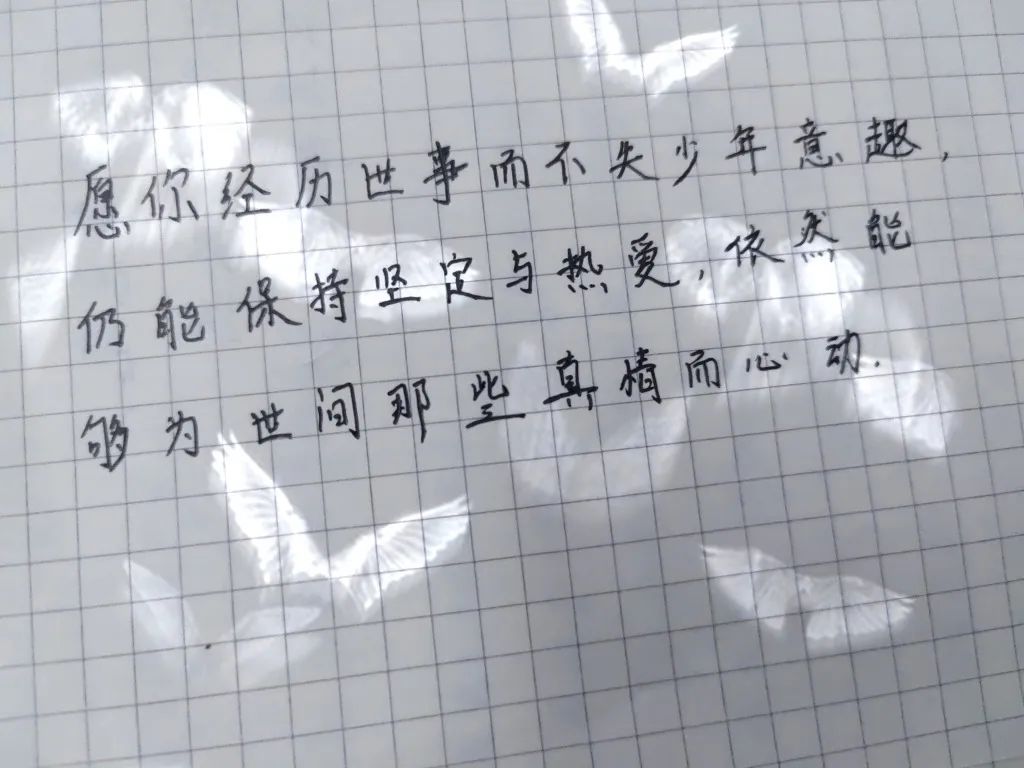 愿你经历世事而不失少年意趣，
仍能保持坚定与热爱，依然能
够为世间那些真情而心动.